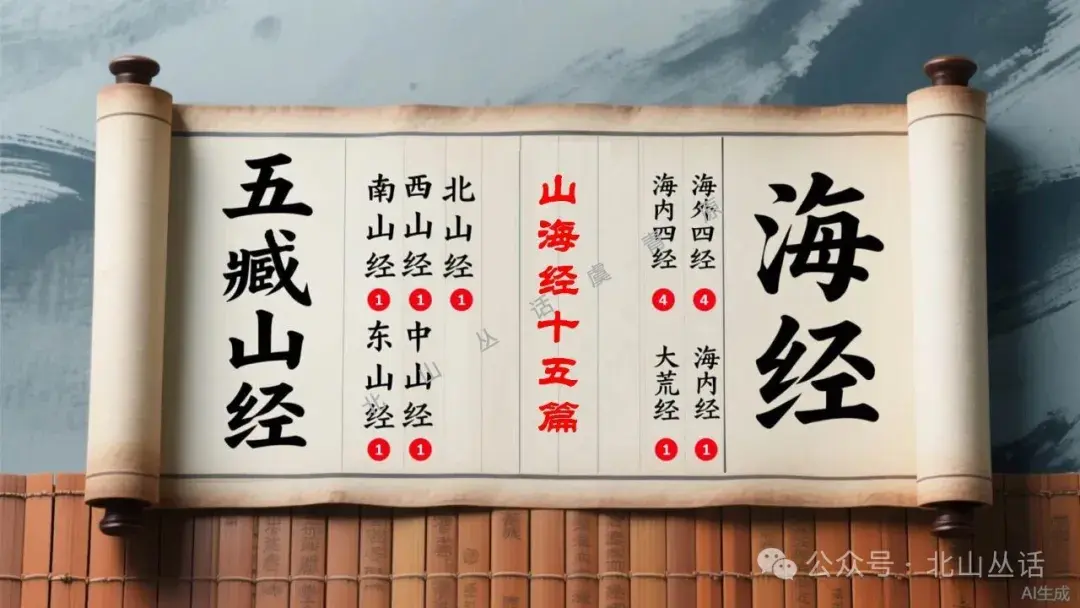 五臧山经
南山经
1
西山经
1
北山经
1
东山经
1
中山经
1
山海经十五篇
海内四经
4
海外四经
4
大荒经
1
海内经
1
海经
北山丛话 虞青族
公众号·北山丛话
AI生成